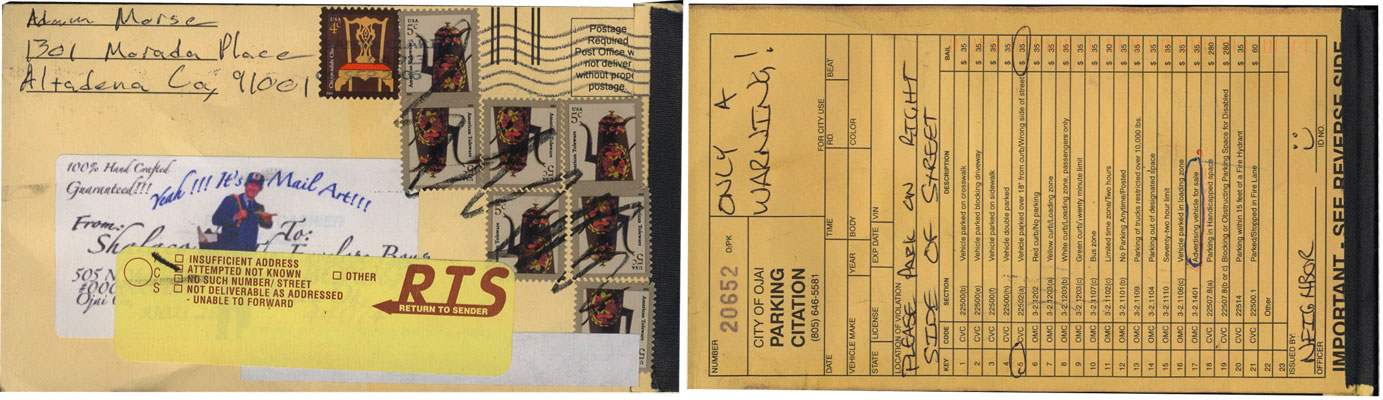 Adam Morse
1301 Morada Place
Altadena Ca, 91001
USA
4c
Chippendale Chair
USA
5c
American Toleware
Postage
Required
Post Office w
not deliver
without prope
postage
American Toleware
American Toleware
USA
5c
American Toleware
American Toleware
USA
5c
100% Hand Crafted
Guaranteed!!!
Yeah!!! It's Mail Art!!!
From:
To:
505 N
Ojai
C
S
INSUFFICIENT ADDRESS
ATTEMPTED NOT KNOWN
OTHER
NO SUCH NUMBER/ STREET
NOT DELIVERABLE AS ADDRESSED
- UNABLE TO FORWARD
RTS
RETURN TO SENDER
NUMBER
20652 D/PK
CITY OF OJAI
PARKING
CITATION
(805) 646-5581
ONLY A
WARNING!
FOR CITY USE
DATE TIME RD. BEAT
VEHICLE MAKE YEAR BODY COLOR
STATE LICENSE EXP DATE VIN
LOCATION OF VIOLATION
PLEASE PARK ON RIGHT
SIDE OF STREET
KEY CODE SECTION DESCRIPTION BAIL
1 CVC 22500(b) Vehicle parked on crosswalk $ 35
2 CVC 22500(e) Vehicle parked blocking driveway $ 35
3 CVC 22500(f) Vehicle parked on sidewalk $ 35
4 CVC 22500(h) Vehicle double parked $ 35
5 CVC 22502(a) Vehicle parked over 18" from curb/Wrong side of street $ 35
6 OMC 3-2.1202 Red curb/No parking $ 35
7 OMC 3-2.1203(a) Yellow curb/Loading zone $ 35
8 OMC 3-2.1203(b) White curb/Loading zone, passengers only $ 35
9 OMC 3-2.1203(c) Green curb/twenty minute limit $ 35
10 OMC 3-2.1107(c) Bus zone $ 35
11 OMC 3-2.1102(c) Limited time zone/Two hours $ 30
12 OMC 3-2.1101(b) No Parking Anytime/Posted $ 35
13 OMC 3-2.1109 Parking of trucks restricted over 10,000 lbs. $ 35
14 OMC 3-2.1104 Parking out of designated space $ 35
15 OMC 3-2.1110 Seventy-two hour limit $ 35
16 OMC 3-2.1106(c) Vehicle parked in loading zone $ 35
17 OMC 3-2.1401 Advertising vehicle for sale $ 35
18 CVC 22507.8(a) Parking in Handicapped space $ 280
19 CVC 22507.8(b or c) Blocking or Obstructing Parking Space for Disabled $ 280
20 CVC 22514 Parking within 15 feet of a Fire Hydrant $ 35
21 CVC 22500.1 Parked/Stopped in Fire Lane $ 60
22 Other
23
ISSUED BY:
NEIGHBOR
OFFICER ID NO.
IMPORTANT - SEE REVERSE SIDE